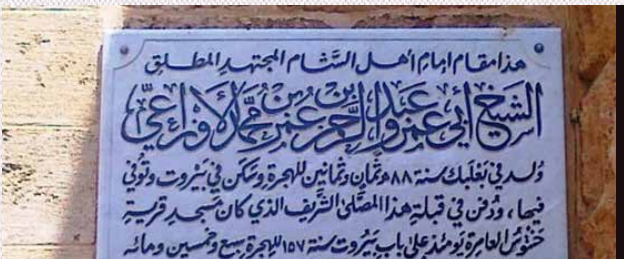 هذا مقام إمام أهل الشام المجتهد المطلق
الشيخ أبي عمرو عبد الرحمن بن عمرو بن محمد الأوزاعي
وُلد في بعلبك سنة ٨٨ه‍ ثمان وثمانين للهجرة وسكن في بيروت وتوفي
فيها، ودُفن في قبلة هذا المصلى الشريف الذي كان مسجد قرية
حنتوس العامرة يومئذ على باب بيروت سنة ١٥٧ للهجرة سبع وخمسين ومائه